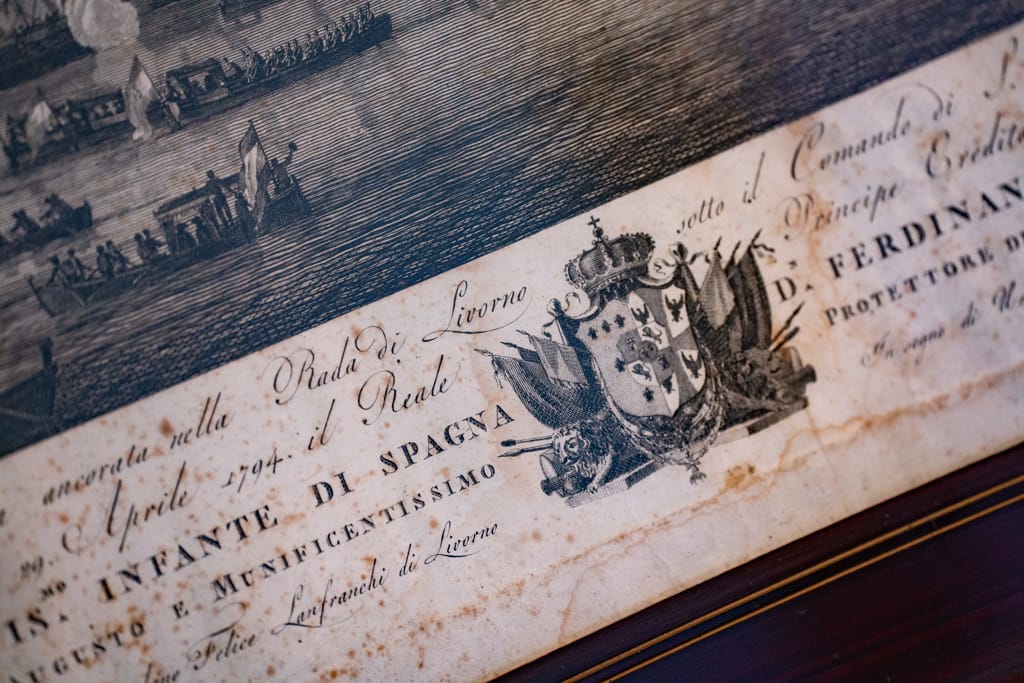 ancorata nella Rada di Livorno sotto il Comando di S.
29. Aprile 1794. il Reale Principe Eredita
IS.MO INFANTE DI SPAGNA D. FERDINAN
AUGUSTO E MUNIFICENTISSIMO PROTETTORE DE
Felice Lanfranchi di Livorno In segno di